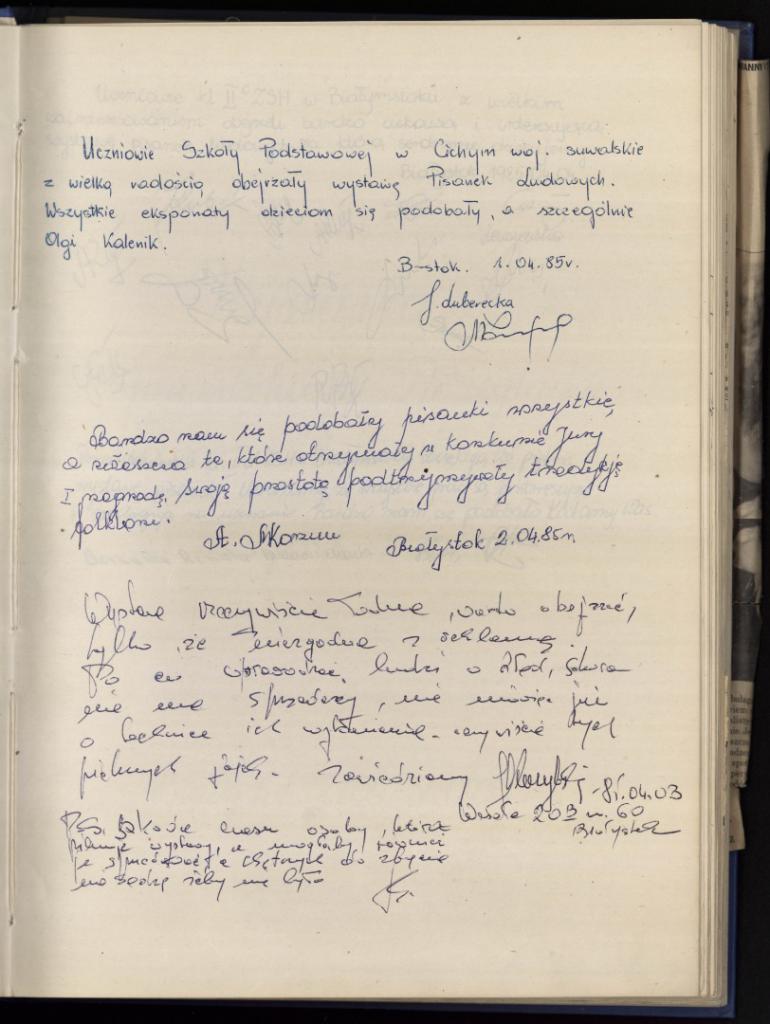 Uczniowie Szkoły Podstawowej w Cichym woj. suwalskie
z wielką radością obejrzały wystawę Pisanek Ludowych.
Wszystkie eksponaty dzieciom się podobały, a szczególnie
Olgi Kalenik.
B-stok. 1.04.85r.
J. Luberecka
Bardzo nam się podobały pisanki wszystkie,
a zwłaszcza te, które otrzymały w konkursie Jury
I nagrodę. Swoją prostotą podtrzymywały tradycję
folkloru.
A.
Białystok 2.04.85r.
Wystawa rzeczywiście ładna, warto obejrzeć,
tylko że niezgodna z reklamą.
Po co wprowadzać ludzi w błąd, skoro
nie ma sprzedaży, nie mówiąc już
o technice ich wykonania oczywiście tych
pięknych jajek. Zawiedziony
85.04.03
Wesoła 20 m. 60
Białystok
P.S. szkoda czasu osoby, która
pilnuje wystawy, a mogłaby również
je sprzedawać a chętnych do zbycia
nie sądzę żeby nie było